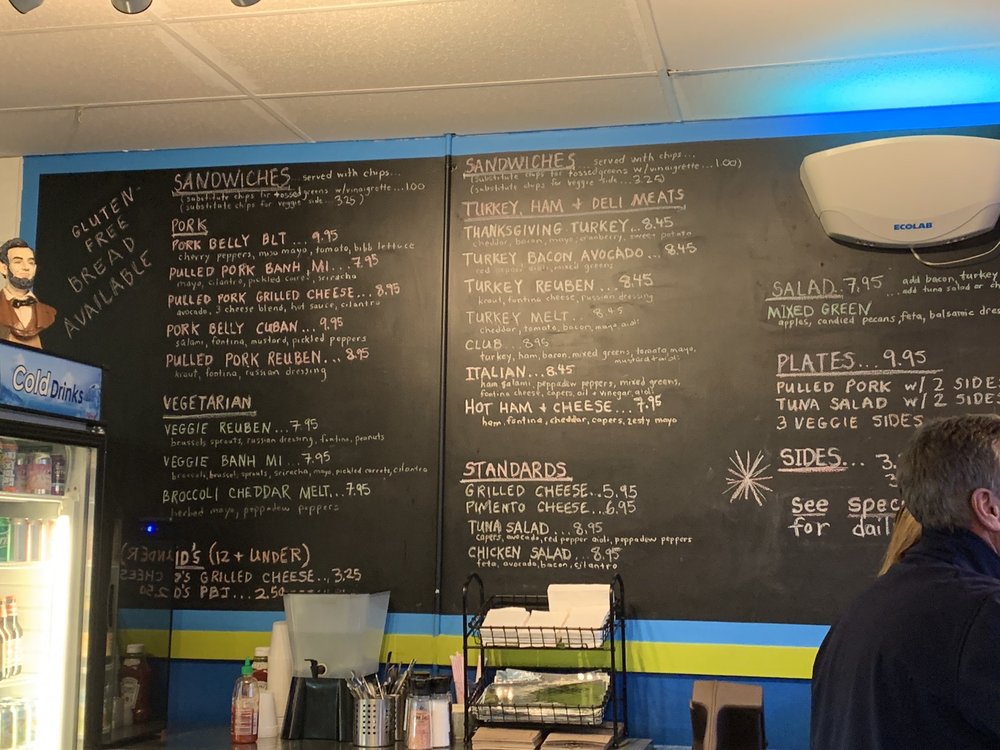 GLUTEN
FREE
BREAD
AVAILABLE
SANDWICHES...served with chips...
(substitute chips for tossed greens w/vinaigrette...1.00
(substitute chips for veggie side...3.25)
PORK
PORK BELLY BLT...9.95
cherry peppers, miso mayo, tomato, bibb lettuce
PULLED PORK BANH MI...7.95
mayo, cilantro, pickled carrot, sriracha
PULLED PORK GRILLED CHEESE...8.95
avocado, 3 cheese blend, hot sauce, cilantro
PORK BELLY CUBAN...9.95
salami, fontina, mustard, pickled peppers
PULLED PORK REUBEN...8.95
kraut, fontina, russian dressing
VEGETARIAN
VEGGIE REUBEN...7.95
brussels sprouts, russian dressing, fontina, peanuts
VEGGIE BANH MI...7.95
broccoli, brussel sprouts, sriracha, mayo, pickled carrots, cilantro
BROCCOLI CHEDDAR MELT...7.95
herbed mayo, peppadew peppers
ID'S (12 + UNDER)
GRILLED CHEESE...3.25
PBJ...2.50
SANDWICHES...served with chips...
(substitute chips for tossed greens w/vinaigrette...1.00)
(substitute chips for veggie side...3.25)
TURKEY, HAM + DELI MEATS
THANKSGIVING TURKEY...8.45
cheddar, bacon, mayo, cranberry, sweet potato
TURKEY BACON AVOCADO...8.45
red pepper aioli, mixed greens
TURKEY REUBEN...8.45
kraut, fontina cheese, russian dressing
TURKEY MELT...8.45
cheddar, tomato, bacon, mayo, aioli
CLUB...8.95
turkey, ham, bacon, mixed greens, tomato, mayo,
mustard aioli
ITALIAN...8.45
ham, salami, peppadew peppers, mixed greens,
fontina cheese, capers, oil + vinegar, aioli
HOT HAM + CHEESE...7.95
ham, fontina, cheddar, capers, zesty mayo
STANDARDS
GRILLED CHEESE...5.95
PIMENTO CHEESE...6.95
TUNA SALAD...8.95
capers, avocado, red pepper aioli, peppadew peppers
CHICKEN SALAD...8.95
feta, avocado, bacon, cilantro
ECOLAB
SALAD...7.95
...add bacon, turkey
...add tuna salad or
MIXED GREEN
apples, candied pecans, feta, balsamic
PLATES...9.95
PULLED PORK w/ 2 SIDES
TUNA SALAD w/ 2 SIDES
3 VEGGIE SIDES
SIDES...3.
SEE
for
Cold Drinks